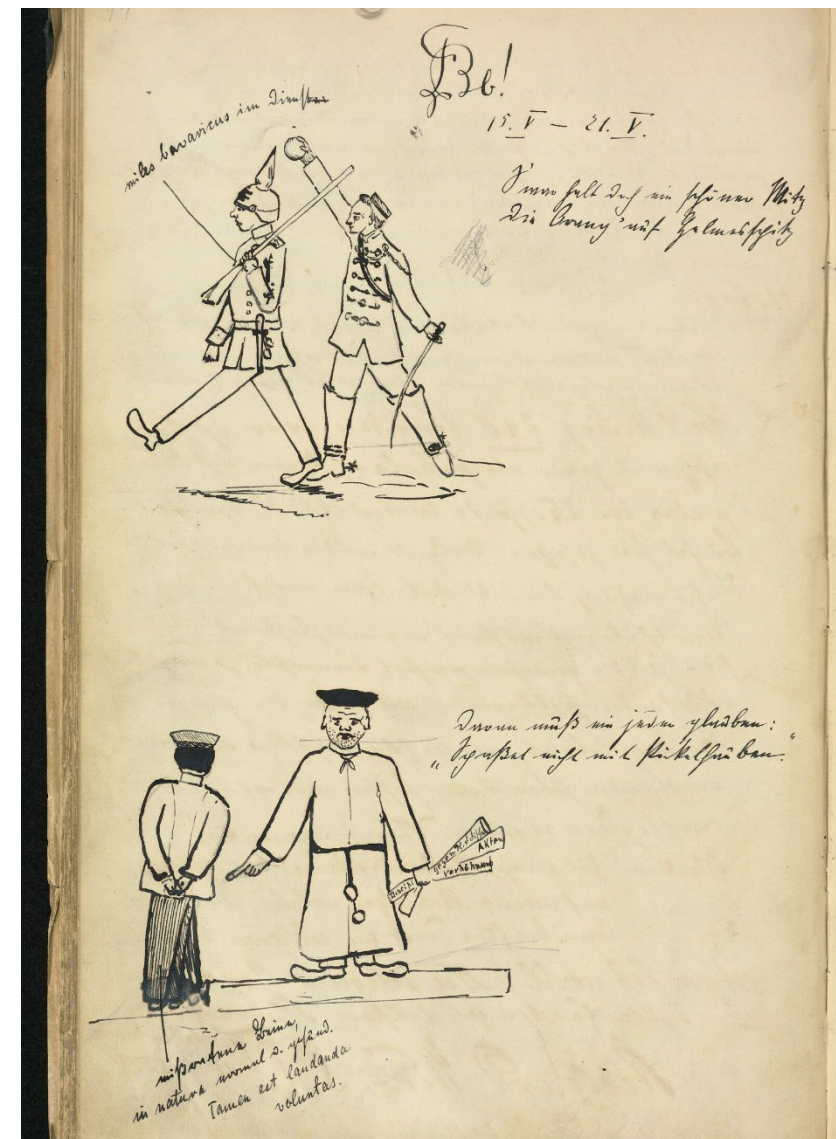 Bb!
15. V – 21. V.
miles bavaricus im Dienst
S'war halt doch ein schöner Witz
Die Orang' auf Helmesspitz
Daran muß ein jeder glauben:
„Spaßet nicht mit Pickelhauben."
Akten
Vernehmung
mißratene Beine,
in natura normal u. gesund.
Tamen est laudanda
voluntas.